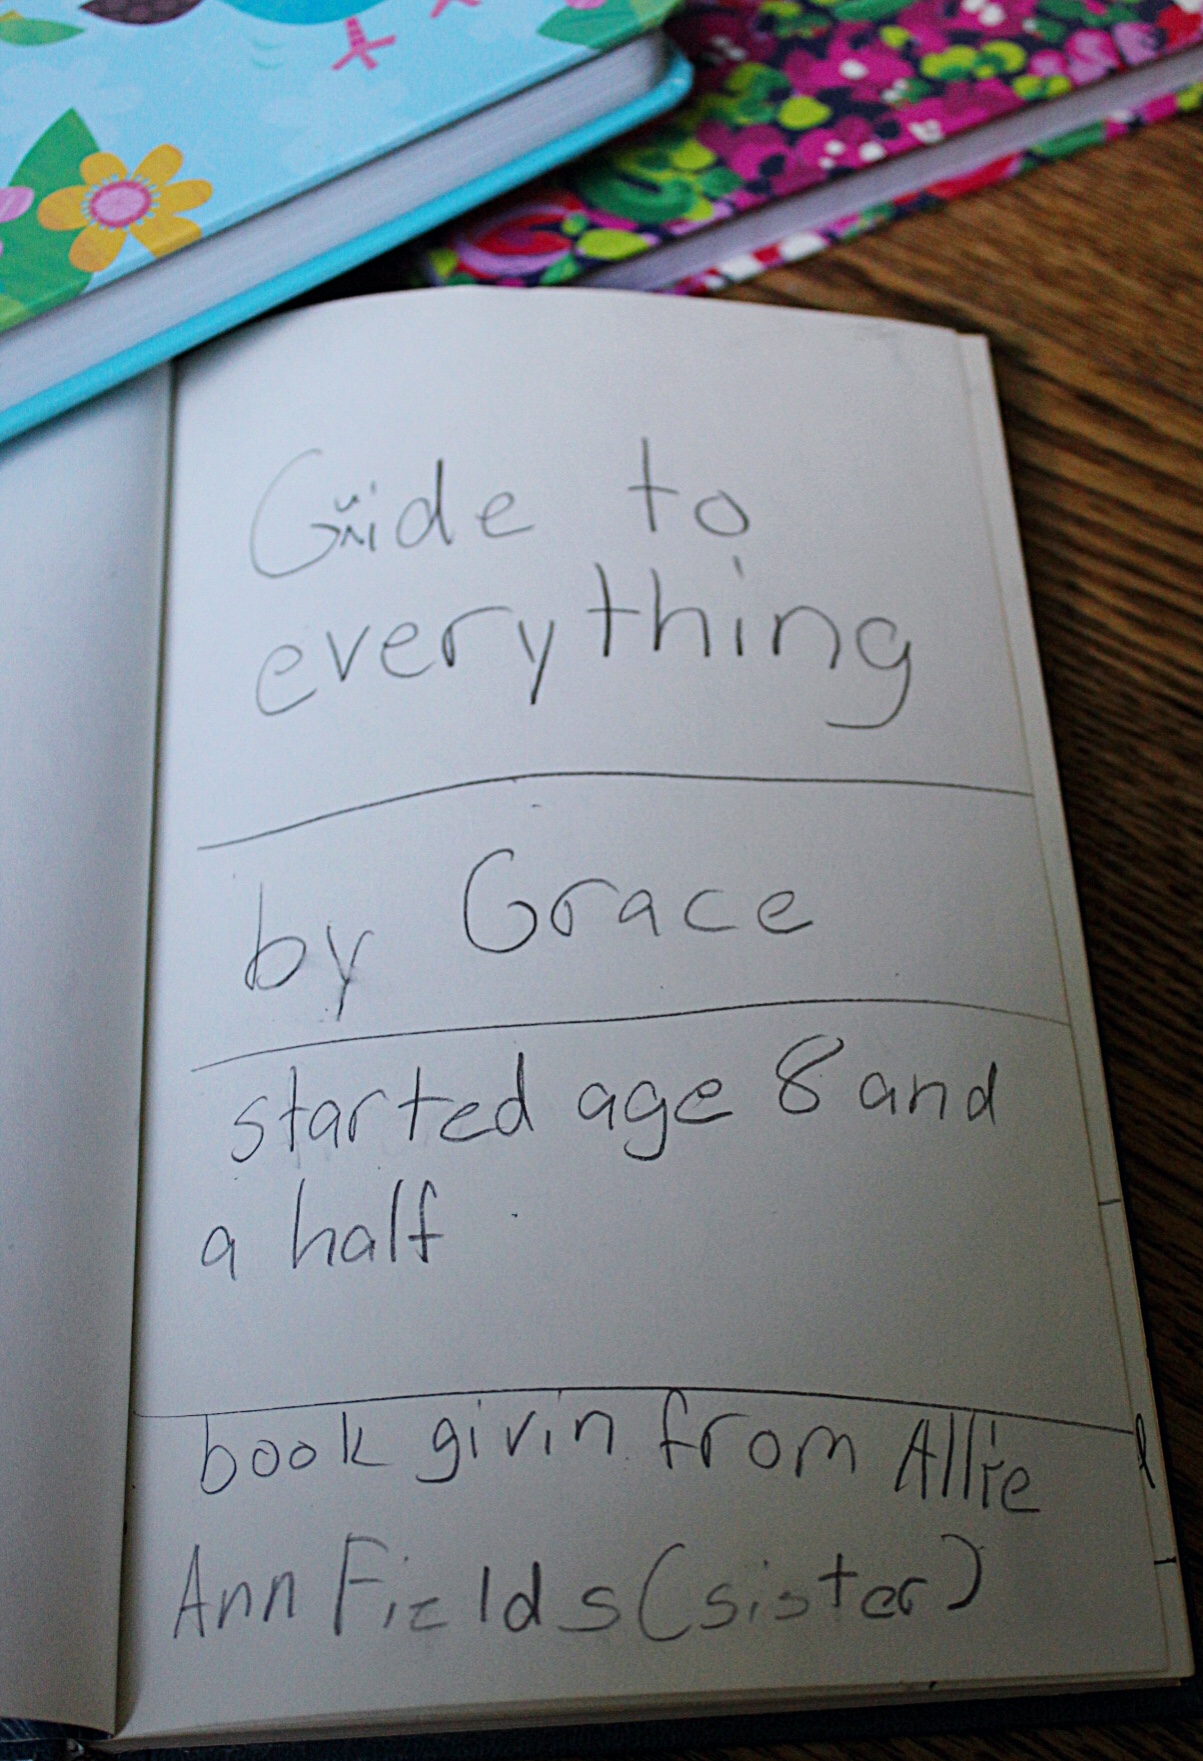 Guide to
everything
by Grace
started age 8 and
a half
book givin from Allie
Ann Fields (sister)